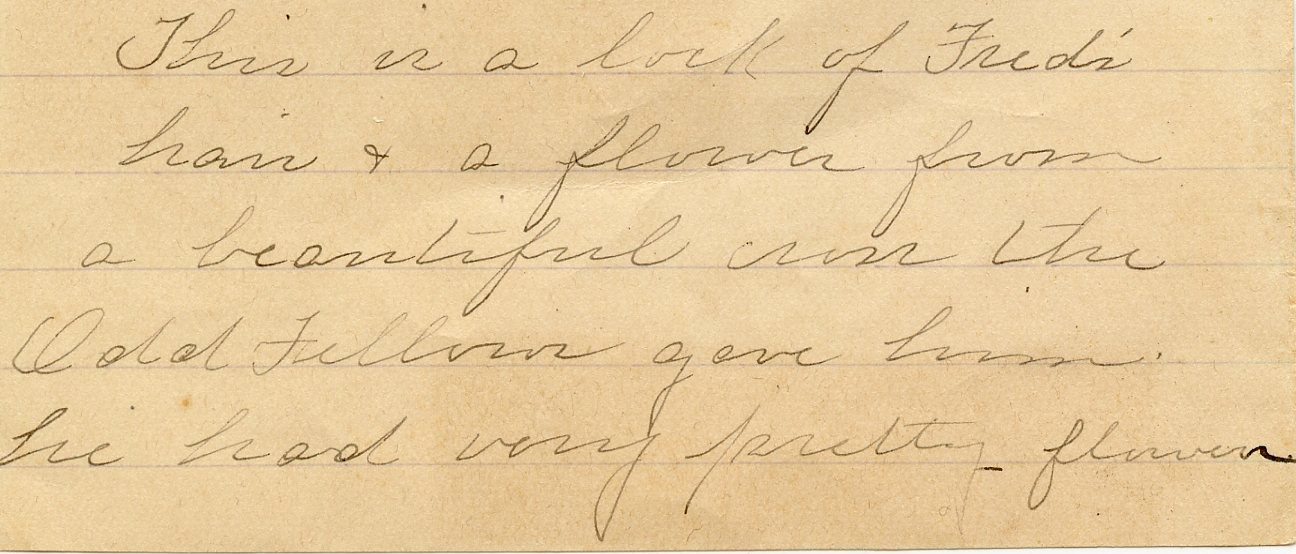 This is a lock of Fred's
hair & a flower from
a beautiful the
Odd Fellows gave him.
he had very pretty flowers